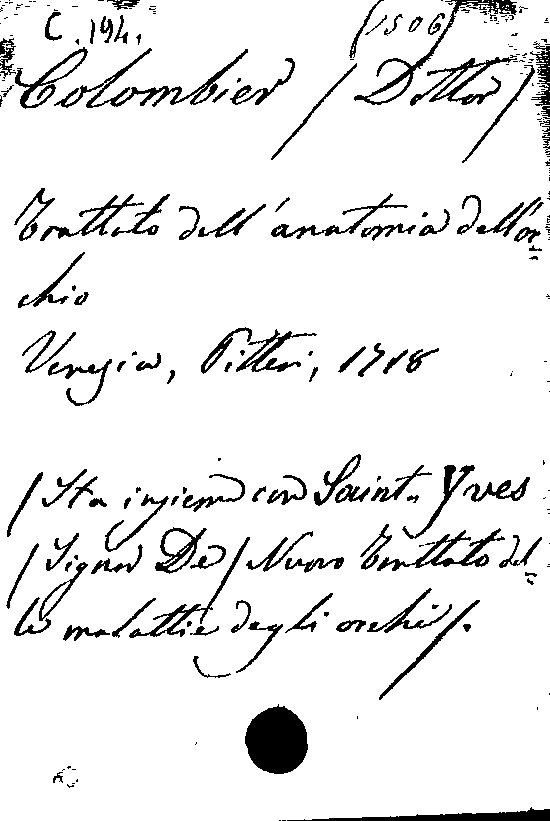 C.194. (1506)
Colombier / Dottor /
Trattato dell'anatomia dell'oc=
chio
Venezia, Pitteri, 1718
/ Sta insieme con Saint-Yves
/ Signor De / Nuovo Trattato del=
le malattie degli occhi /.